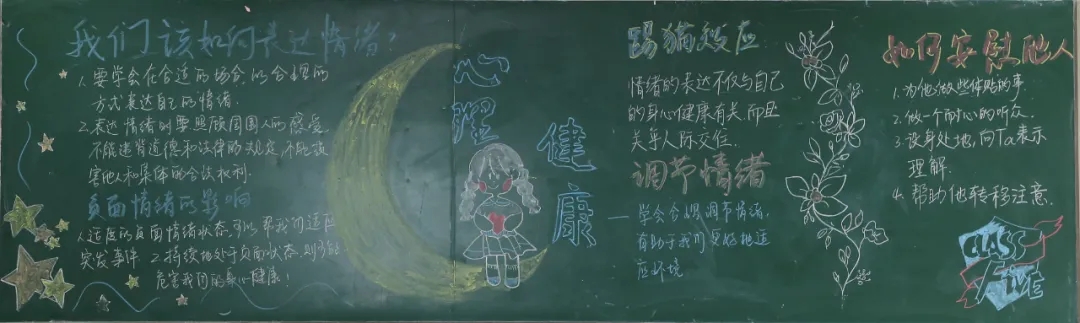 我们该如何表达情绪?
1.要学会在合适的场合,以合理的
方式表达自己的情绪.
2.表达情绪时要照顾周围人的感受
不能违背道德和法律的规定,不能波
害他人和集体的合法权利.
负面情绪的影响
1.适度的负面情绪状态可以帮我们适应
突发事件 2.持续地处于负面状态,则可能
危害我们的身心健康!
心理
健康
踢猫效应
情绪的表达不仅与自己
的身心健康有关,而且
关乎人际交往.
调节情绪
学会合理调节情绪,
有助于我们更好地适
应环境
如何安慰他人
1.为他做些体贴的事.
2.做一个耐心的听众.
3.设身处地,向Ta表示
理解.
4.帮助他转移注意.
CLASS
FIVE